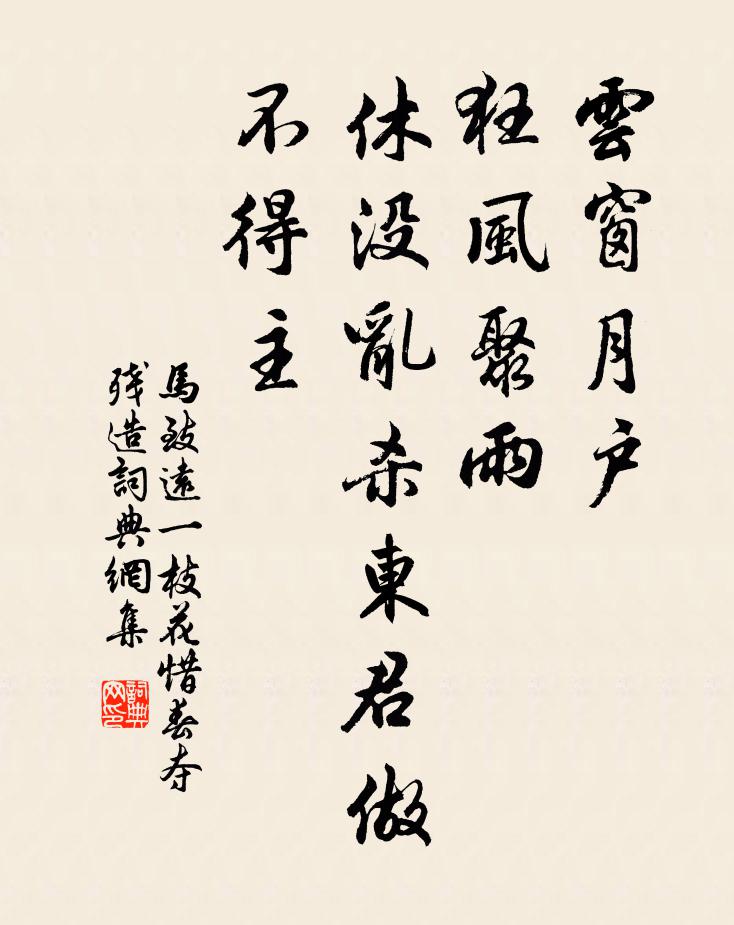 雲窗月户
狂風聚雨
休没亂杀東君做
不得主
馬致遠一枝花惜春夺
残造詞典網集
詞典
网印